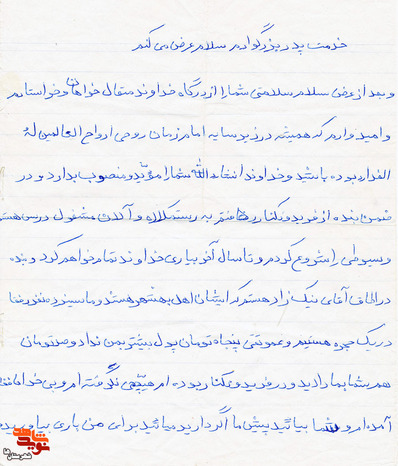 خدمت پدر بزرگوارم سلام عرض می کنم
و بعد از عرض سلام سلامتی شما را از درگاه خداوند متعال خواهان و خواستارم
و امیدوارم که همیشه در زیر سایه امام زمان روحی ارواح العالمین لهُ
الفداء بوده باشید و خداوند انشاء الله شما را مؤید و منصوب بدارد و در
ضمن بنده از فریدونکنار رفتم به رستمکلا و آلان مشغول درس هستم
و سیوطی را شروع کردم و تا سال آخر بیاری خداوند تمام خواهم کرد و بنده
در اطاق آقای نیک زاد هستم که ایشان اهل بهشهر هستند و ما سیزده نفر رفقا
در یک حجره هستیم و عمو تقی پنجاه تومان پول بیشتر بمن نداد و صد تومان
هم شما بما دادید و در فریدونکنار بوده ام هیچی نگرفته ام و بی خداحافظی
آمده ام و شما بیائید پیش ما اگر دارید میائید برای من باری بیاورید
نوید شاهد